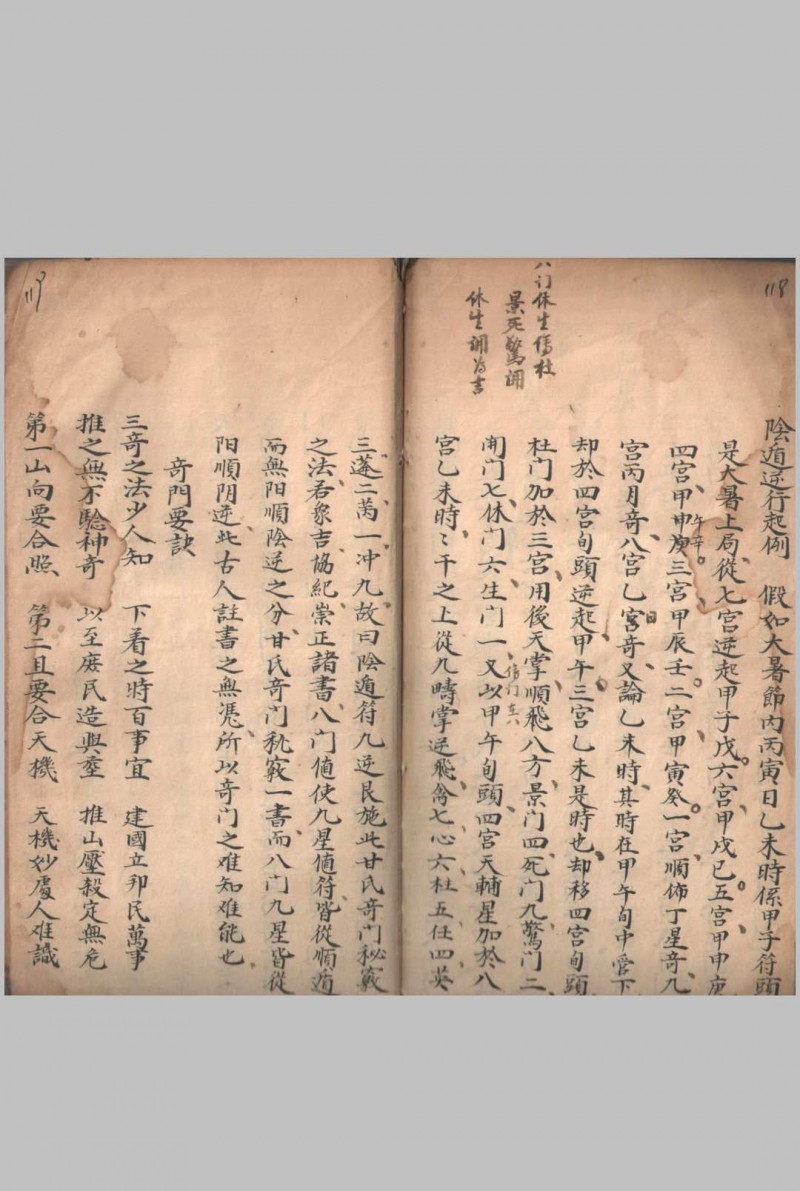 118
八门休生傷杜
景死驚開
休生開為吉
陰遁逆行起例 假如大暑節内丙寅日乙未時係甲子符頭
是大暑上局從七宮逆起甲子戊六宮甲戌己五宮甲申庚
四宮甲申庚三宮甲辰壬二宮甲寅癸一宮順佈丁星奇九
午辛
宮丙月奇八宮乙宮奇又論乙未時其時在甲午旬中管下
日
却於四宮旬頭逆起甲午三宮乙未是時也却移四宮旬頭
杜门加於三宮用後天掌順飛八方景门四死门九驚门二
開门七休门六生门一又以甲午旬頭四宮天輔星加於八
傷门在八
宮乙未時〻干之上從几疇掌逆飛禽七心六柱五任四英
119
三蓬二芮一冲九故曰陰遁符九逆艮施此甘氏奇门秘竅
之法若象吉協紀崇正諸書八门値使九星値符皆從順遁
而無阳順陰逆之分甘氏奇门秘竅一書而八门九星皆從
阳順阴逆此古人註書之無憑所以奇门之难知难能也
奇門要訣
三奇之法少人知 下着之時百事宜 建國立邦民萬事
推之無不驗神奇 以至庶民造與塟 推山壓殺定無危
第一山向要合照 第二且要合天機 天機妙處人难識